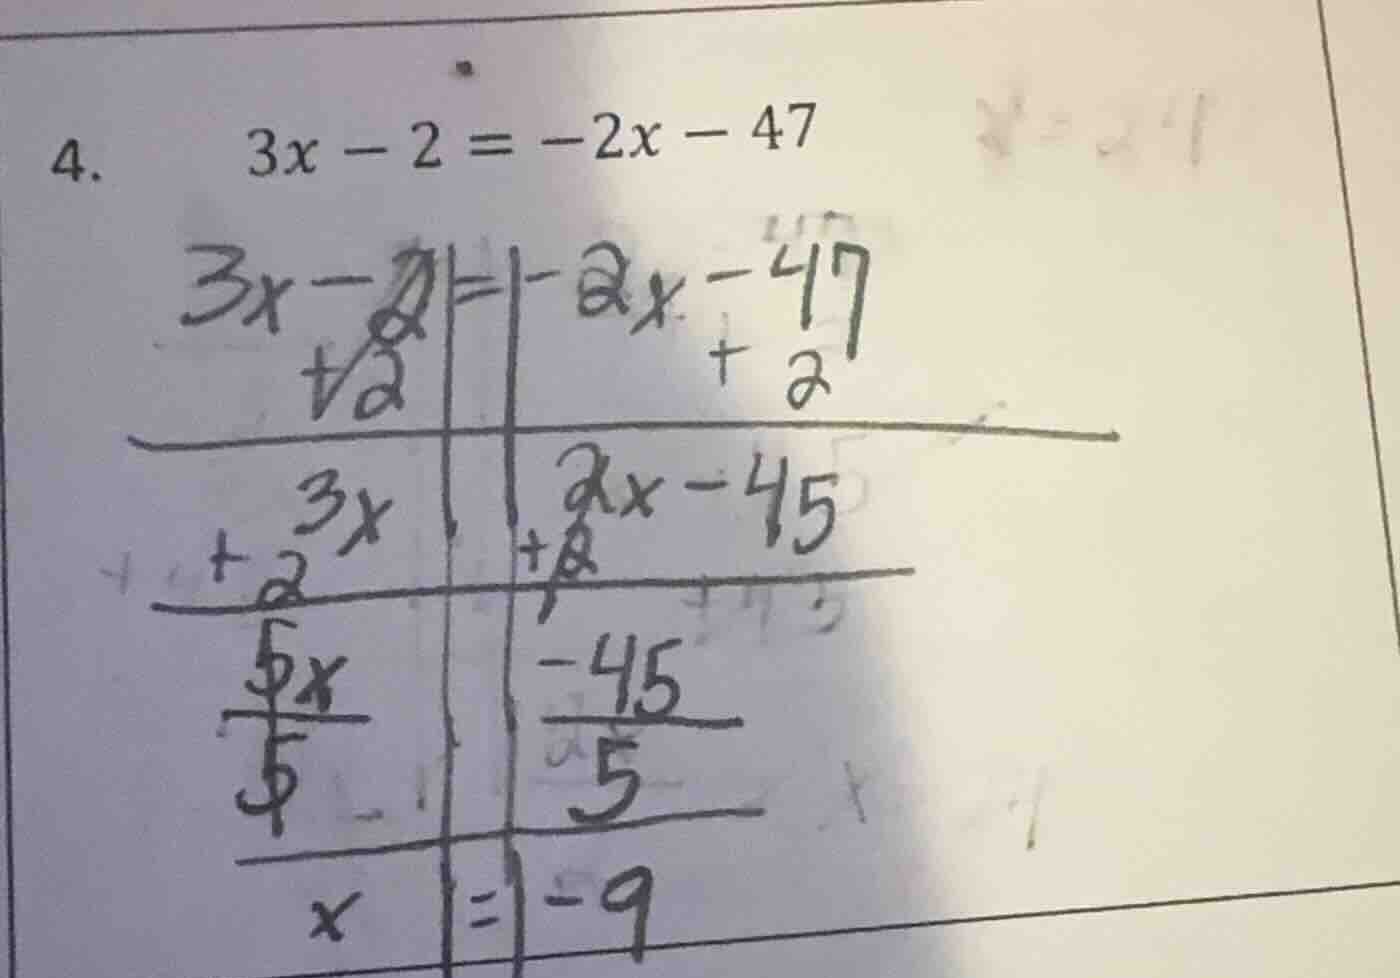 4. 3x − 2 = −2x − 47
3x - 2 = -2x - 47
+2 + 2
3x 2x - 45
+2 +2
5x -45
5 5
x = -9